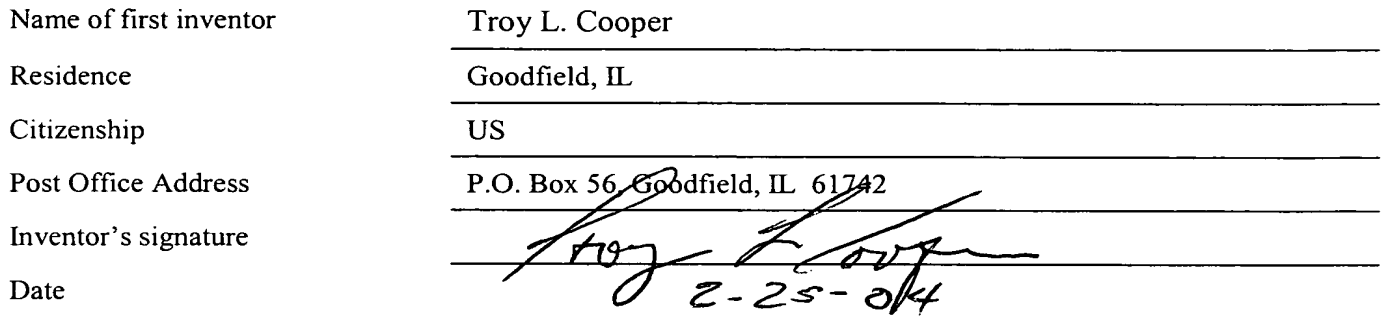 Name of first inventor Troy L. Cooper
Residence Goodfield, IL
Citizenship US
Post Office Address P.O. Box 56, Goodfield, IL 61742
Inventor's signature Troy L Cooper
Date 2-25-04